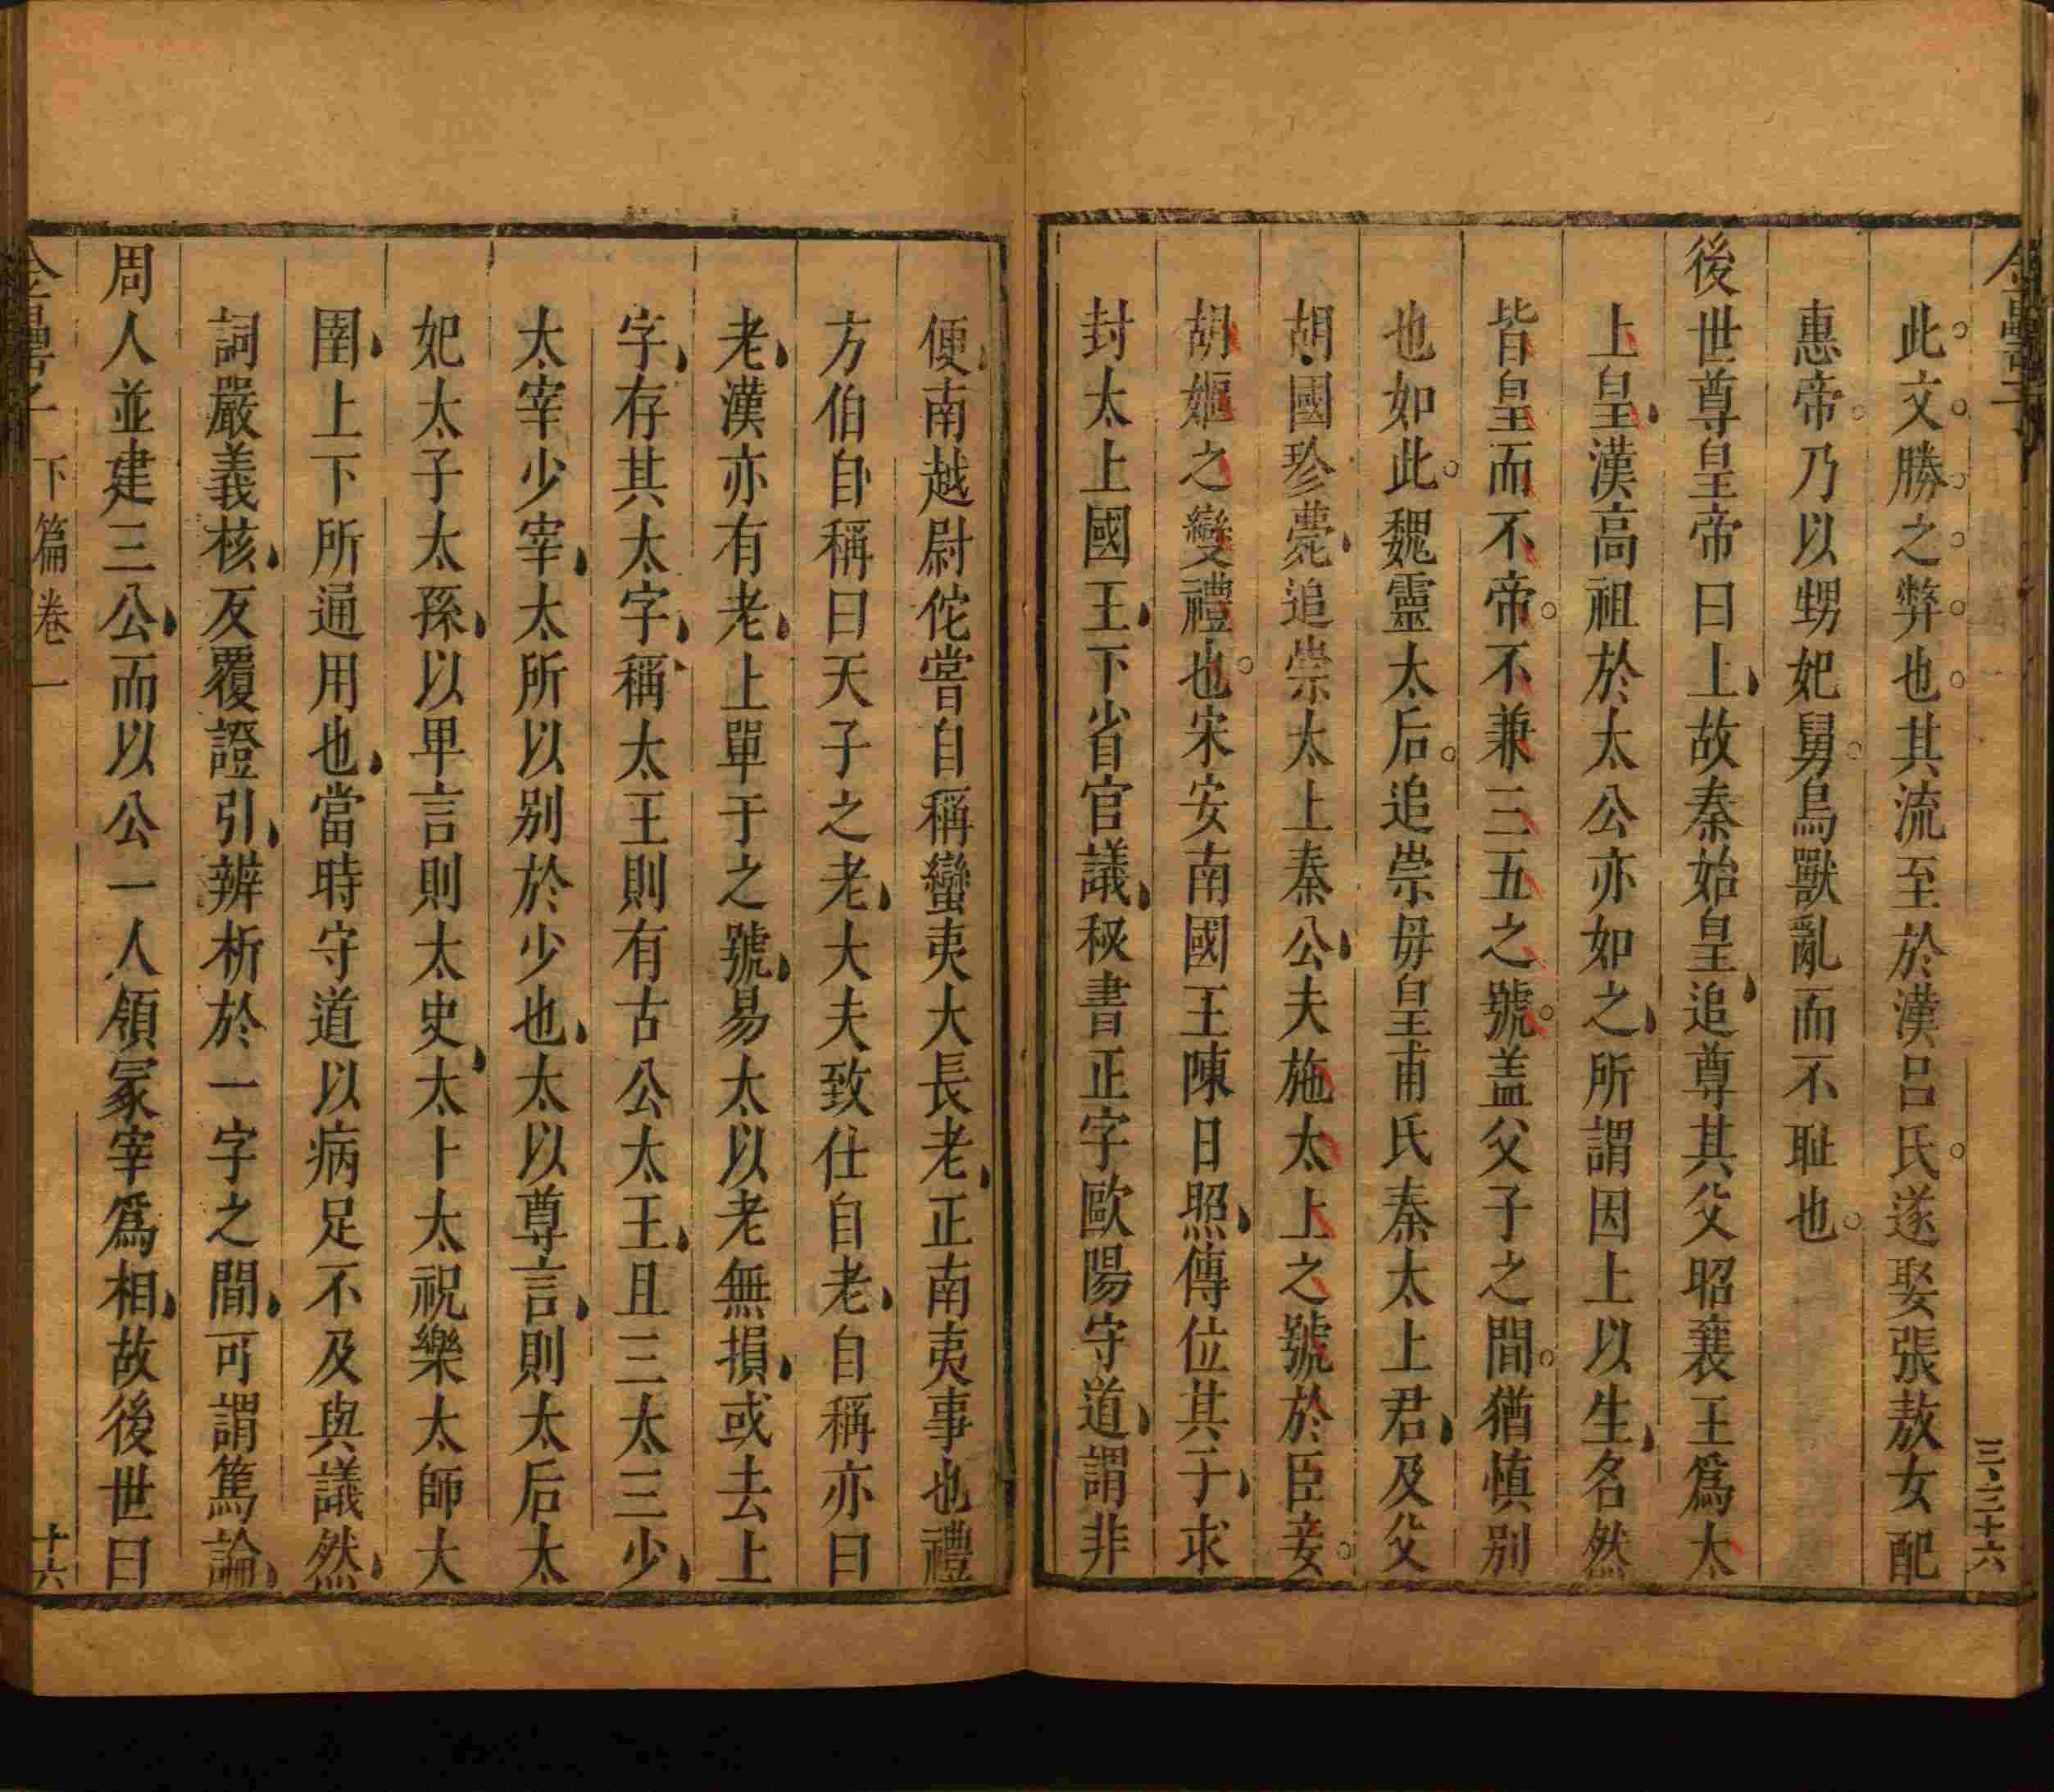 此文勝之弊也其流至於漢呂氏遂娶張敖女配
惠帝乃以甥妃舅鳥獸亂而不耻也
後世尊皇帝曰上故秦始皇追尊其父昭襄王爲太
上皇漢高祖於太公亦如之所謂因上以生名然
皆皇而不帝不兼三五之號盖父子之間猶慎别
也如此魏靈太后追崇毋皇甫氏秦太上君及父
胡國珍薨追崇太上秦公夫施太上之號於臣妾
胡嫗之變禮也宋安南國王陳日照傳位其子求
封太上國王下省官議秘書正字歐陽守道謂非
三三十六
便南越尉佗嘗自稱蠻夷大長老正南夷事也禮
方伯自稱曰天子之老大夫致仕自老自稱亦曰
老漢亦有老上單于之號易太以老無損或去上
字存其太字稱太王則有古公太王且三太三少
太宰少宰太所以别於少也太以尊言則太后太
妃太子太孫以卑言則太史太卜太祝樂太師大
圉上下所通用也當時守道以病足不及與議然
詞嚴義核反覆證引辨析於一字之間可謂篤論
周人並建三公而以公一人領冢宰爲相故後世曰
下篇卷一
十六